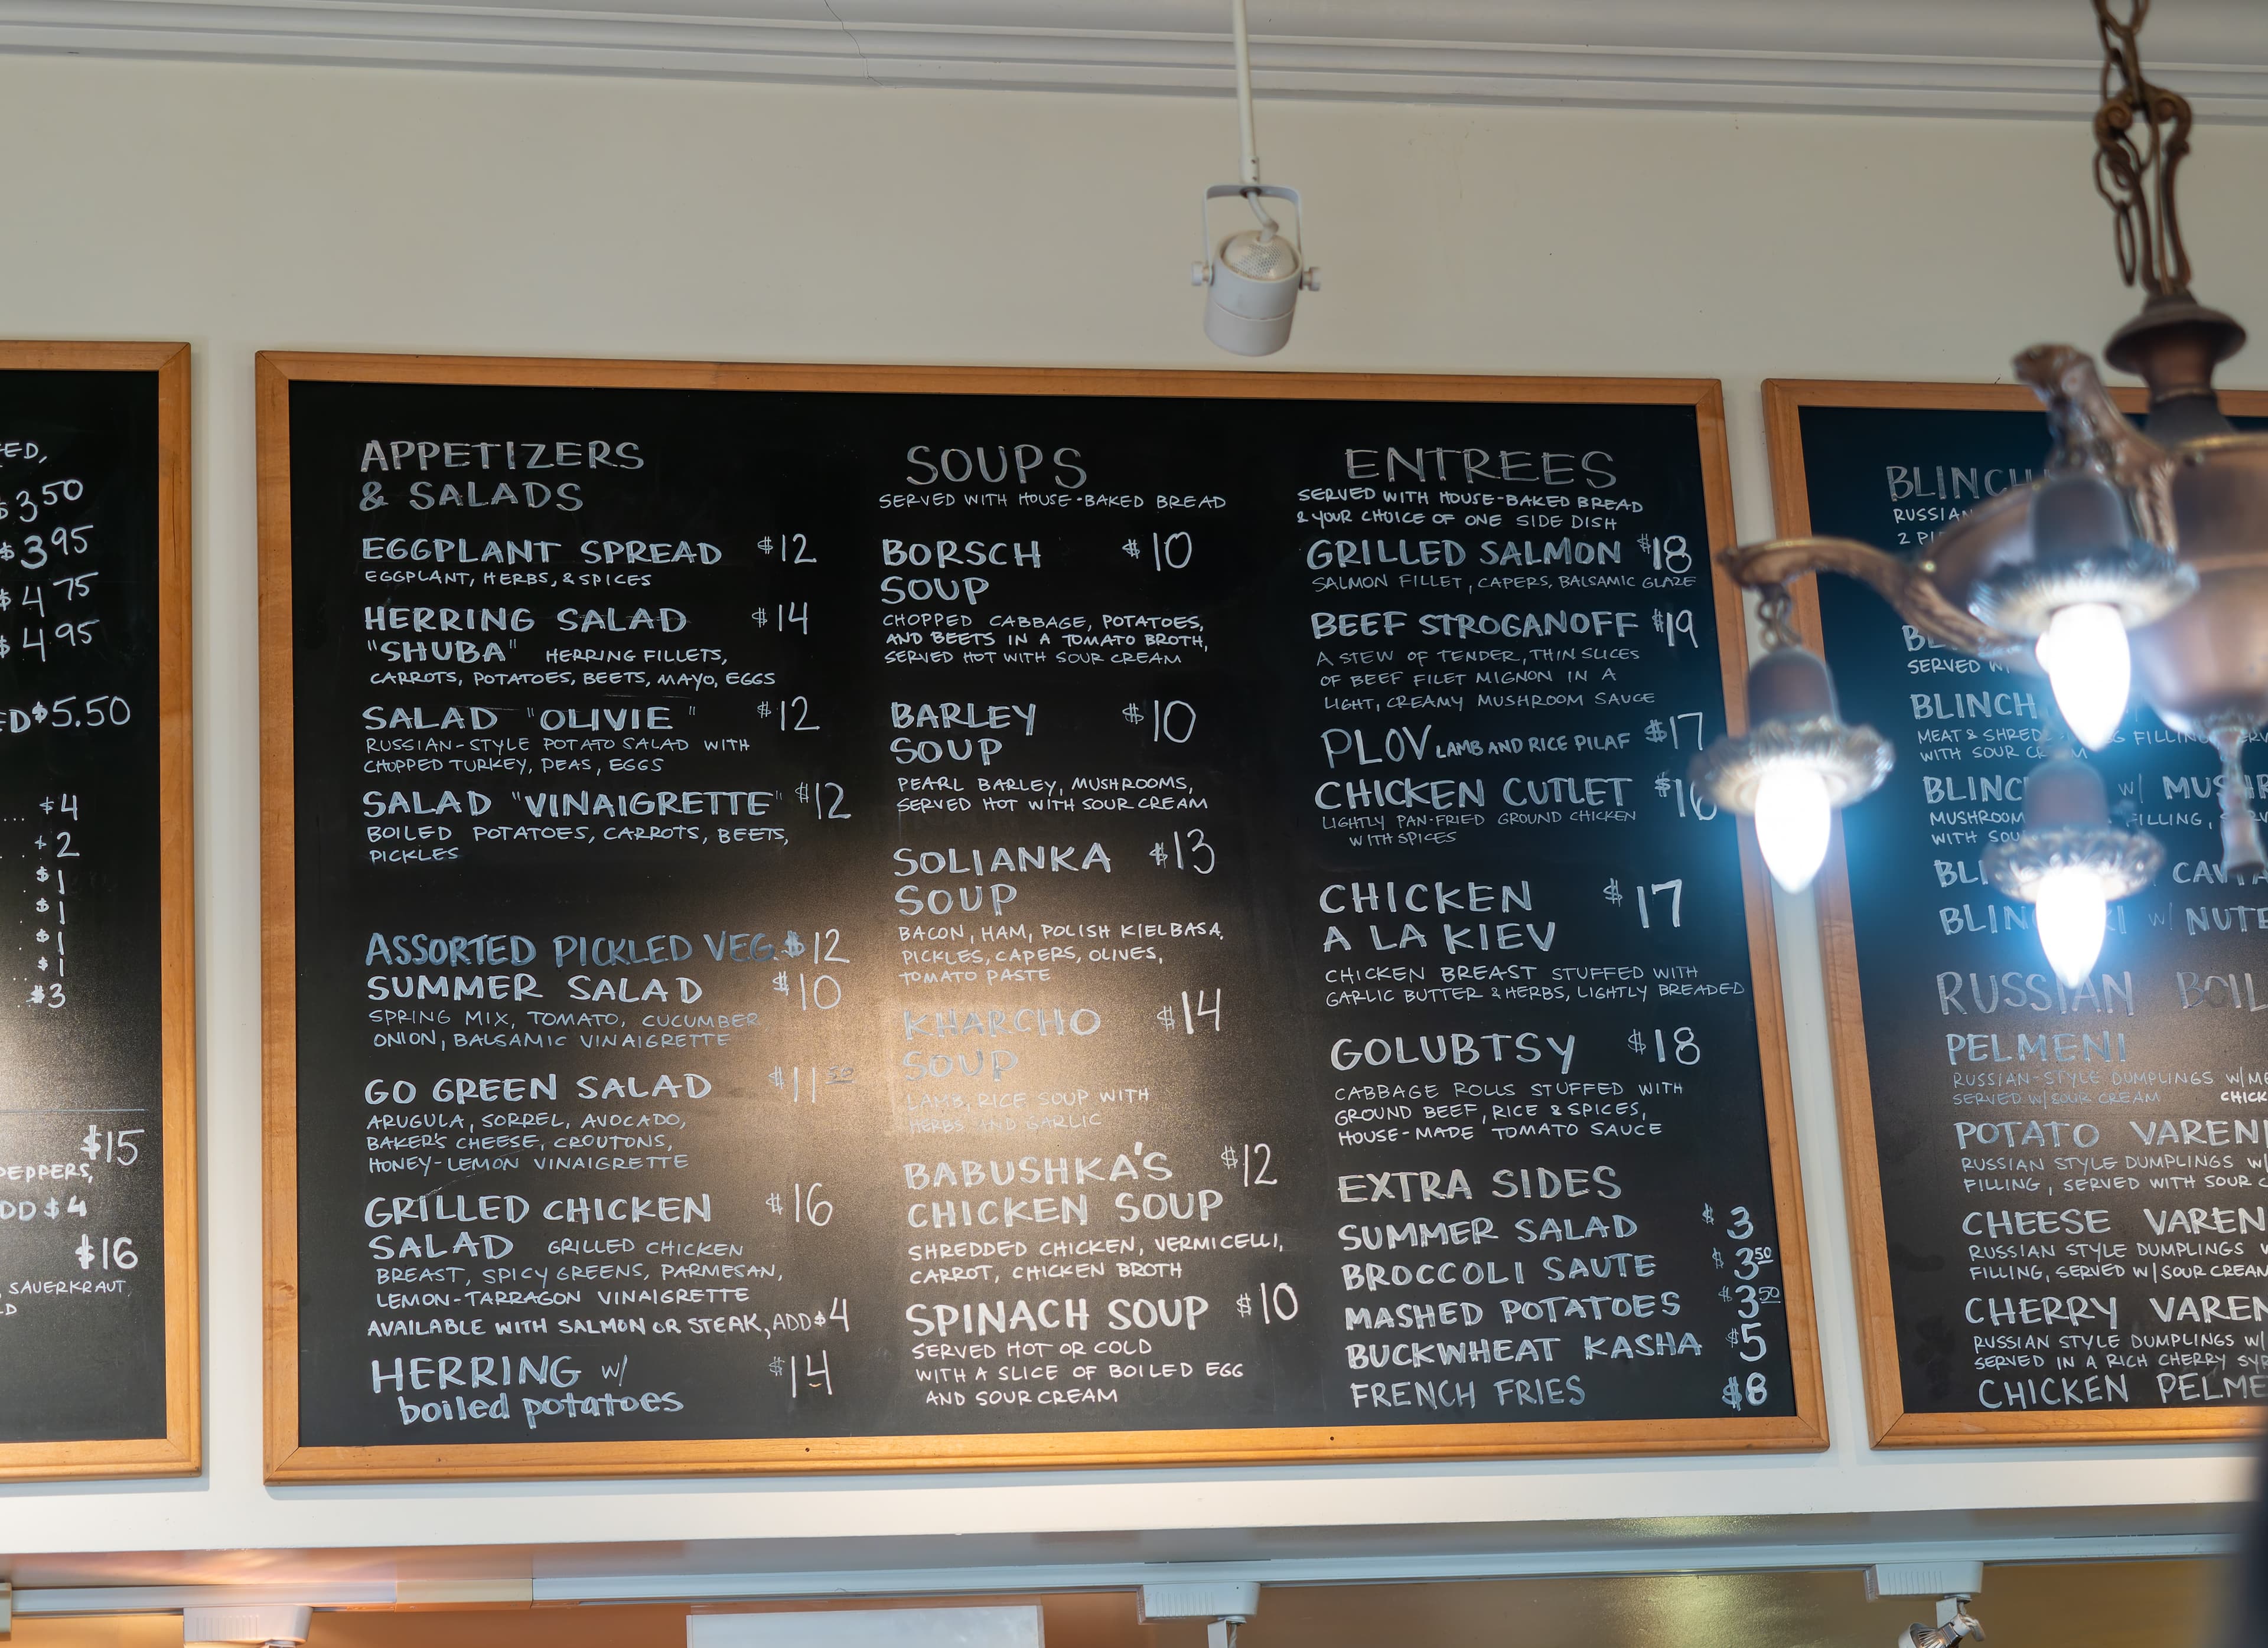 ED,
$3 50
$3 95
$4 75
$4 95
ED $5.50
... $4
.. + 2
. $1
. $1
. $1
. $1
$3
$15
PEPPERS,
DD $4
$16
, SAUERKRAUT,
D
APPETIZERS
& SALADS
EGGPLANT SPREAD $12
EGGPLANT, HERBS, & SPICES
HERRING SALAD $14
"SHUBA" HERRING FILLETS,
CARROTS, POTATOES, BEETS, MAYO, EGGS
SALAD "OLIVIE" $12
RUSSIAN-STYLE POTATO SALAD WITH
CHOPPED TURKEY, PEAS, EGGS
SALAD "VINAIGRETTE" $12
BOILED POTATOES, CARROTS, BEETS,
PICKLES
ASSORTED PICKLED VEG $12
SUMMER SALAD $10
SPRING MIX, TOMATO, CUCUMBER
ONION, BALSAMIC VINAIGRETTE
GO GREEN SALAD $11 50
ARUGULA, SORREL, AVOCADO,
BAKER'S CHEESE, CROUTONS,
HONEY-LEMON VINAIGRETTE
GRILLED CHICKEN $16
SALAD GRILLED CHICKEN
BREAST, SPICY GREENS, PARMESAN,
LEMON-TARRAGON VINAIGRETTE
AVAILABLE WITH SALMON OR STEAK, ADD $4
HERRING w/ $14
boiled potatoes
SOUPS
SERVED WITH HOUSE-BAKED BREAD
BORSCH $10
SOUP
CHOPPED CABBAGE, POTATOES,
AND BEETS IN A TOMATO BROTH,
SERVED HOT WITH SOUR CREAM
BARLEY $10
SOUP
PEARL BARLEY, MUSHROOMS,
SERVED HOT WITH SOUR CREAM
SOLIANKA $13
SOUP
BACON, HAM, POLISH KIELBASA,
PICKLES, CAPERS, OLIVES,
TOMATO PASTE
KHARCHO $14
SOUP
LAMB, RICE SOUP WITH
HERBS AND GARLIC
BABUSHKA'S $12
CHICKEN SOUP
SHREDDED CHICKEN, VERMICELLI,
CARROT, CHICKEN BROTH
SPINACH SOUP $10
SERVED HOT OR COLD
WITH A SLICE OF BOILED EGG
AND SOUR CREAM
ENTREES
SERVED WITH HOUSE-BAKED BREAD
& YOUR CHOICE OF ONE SIDE DISH
GRILLED SALMON $18
SALMON FILLET, CAPERS, BALSAMIC GLAZE
BEEF STROGANOFF $19
A STEW OF TENDER, THIN SLICES
OF BEEF FILET MIGNON IN A
LIGHT, CREAMY MUSHROOM SAUCE
PLOV LAMB AND RICE PILAF $17
CHICKEN CUTLET $16
LIGHTLY PAN-FRIED GROUND CHICKEN
WITH SPICES
CHICKEN $17
A LA KIEV
CHICKEN BREAST STUFFED WITH
GARLIC BUTTER & HERBS, LIGHTLY BREADED
GOLUBTSY $18
CABBAGE ROLLS STUFFED WITH
GROUND BEEF, RICE & SPICES,
HOUSE-MADE TOMATO SAUCE
EXTRA SIDES
SUMMER SALAD $3
BROCCOLI SAUTE $3 50
MASHED POTATOES $3 50
BUCKWHEAT KASHA $5
FRENCH FRIES $8
BLINCH
RUSSIAN
2 PI
SERVED W
BLINCH
MEAT & SHRED FILLING,
WITH SOUR CREAM
BLINC w/ MUSHR
MUSHROOM FILLING,
WITH SOU
BLI CAV
BLIN KI w/ NUTE
RUSSIAN BOIL
PELMENI
RUSSIAN-STYLE DUMPLINGS W/ME
SERVED W/SOUR CREAM CHICK
POTATO VARENI
RUSSIAN STYLE DUMPLINGS W/
FILLING, SERVED WITH SOUR C
CHEESE VAREN
RUSSIAN STYLE DUMPLINGS W
FILLING, SERVED W/SOUR CREAM
CHERRY VAREN
RUSSIAN STYLE DUMPLINGS W/
SERVED IN A RICH CHERRY SY
CHICKEN PELME